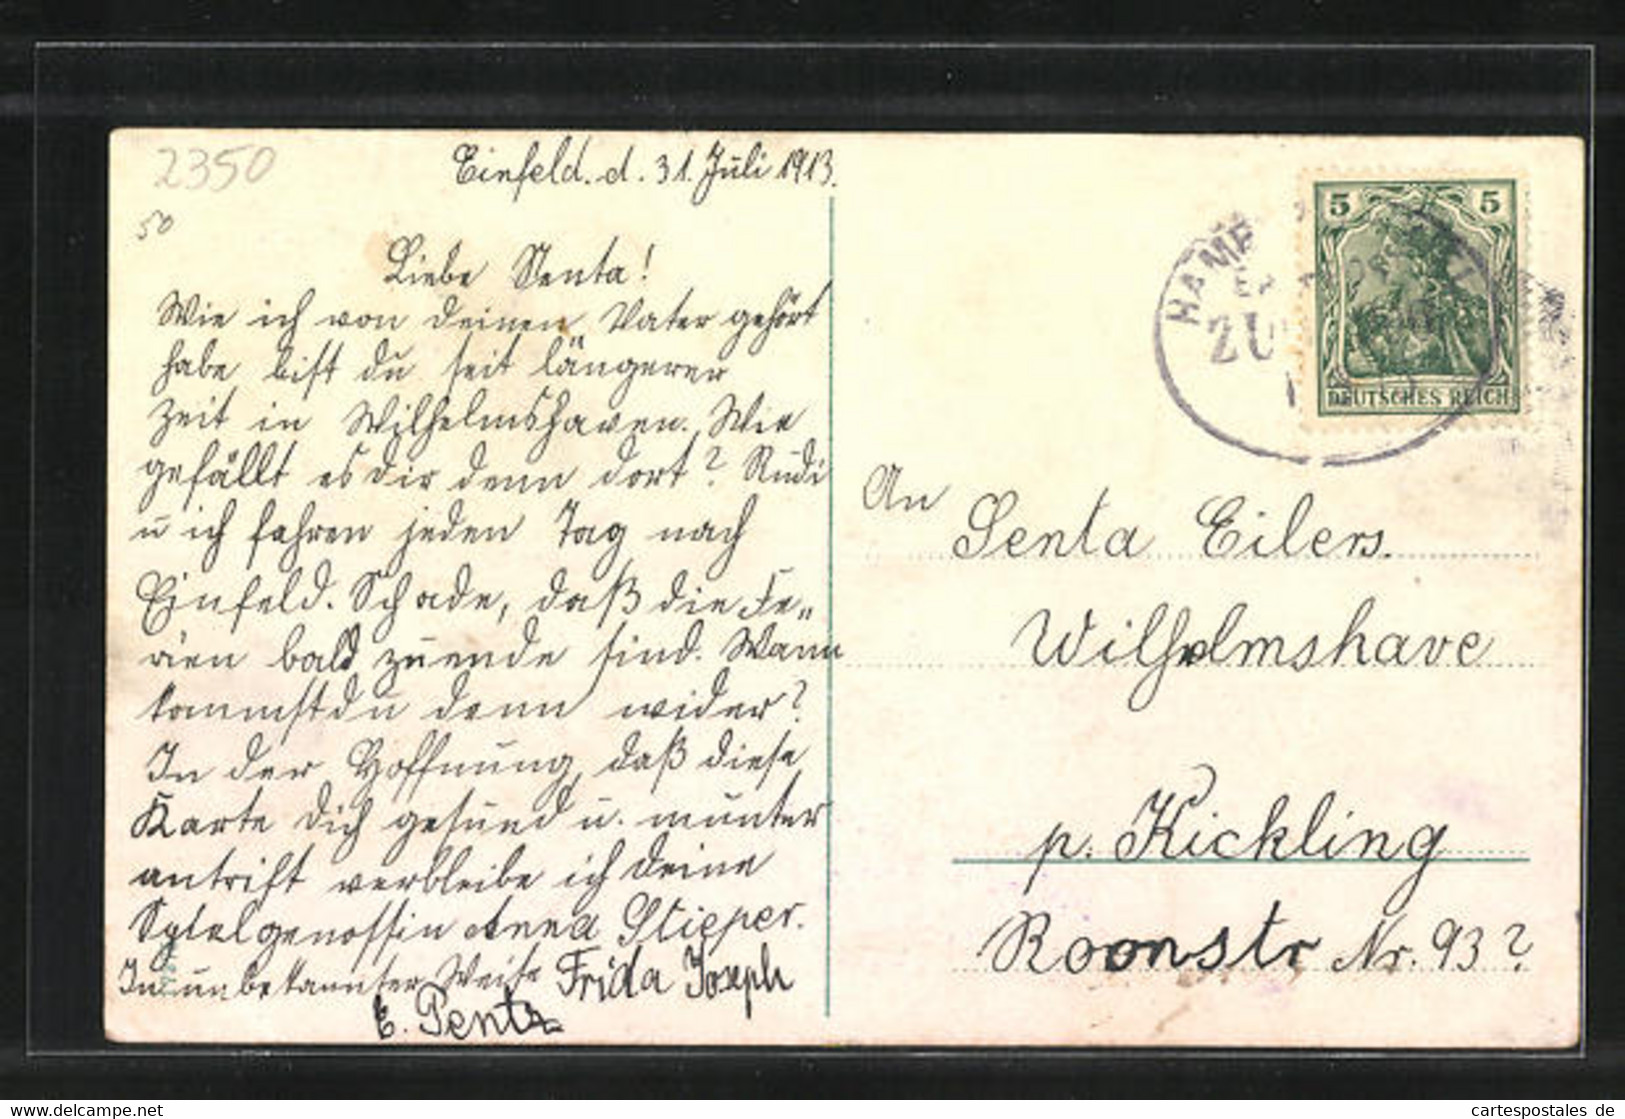 2350
50
Einfeld. d. 31. Juli 1913.
Liebe Senta!
Wie ich von deinen Vater gehört
habe bist du seit längerer
Zeit in Wilhelmshaven. Wie
gefällt es dir denn dort? Rudi
u ich fahren jeden Tag nach
Einfeld. Schade, daß die Fe„
rien bald zuende sind. Wann
kommst du denn wider?
In der Hoffnung, daß diese
Karte dich gesund u. munter
antrift verbleibe ich deine
Spielgenossin Anna Stieper.
In unbekannter Weise Frida Joseph
E. Pentz
5 5
DEUTSCHES REICH
HAMB
ZU
An
Senta Eilers.
Wilhelmshave
p. Kickling
Roonstr Nr. 93?
www.cartespostales.de